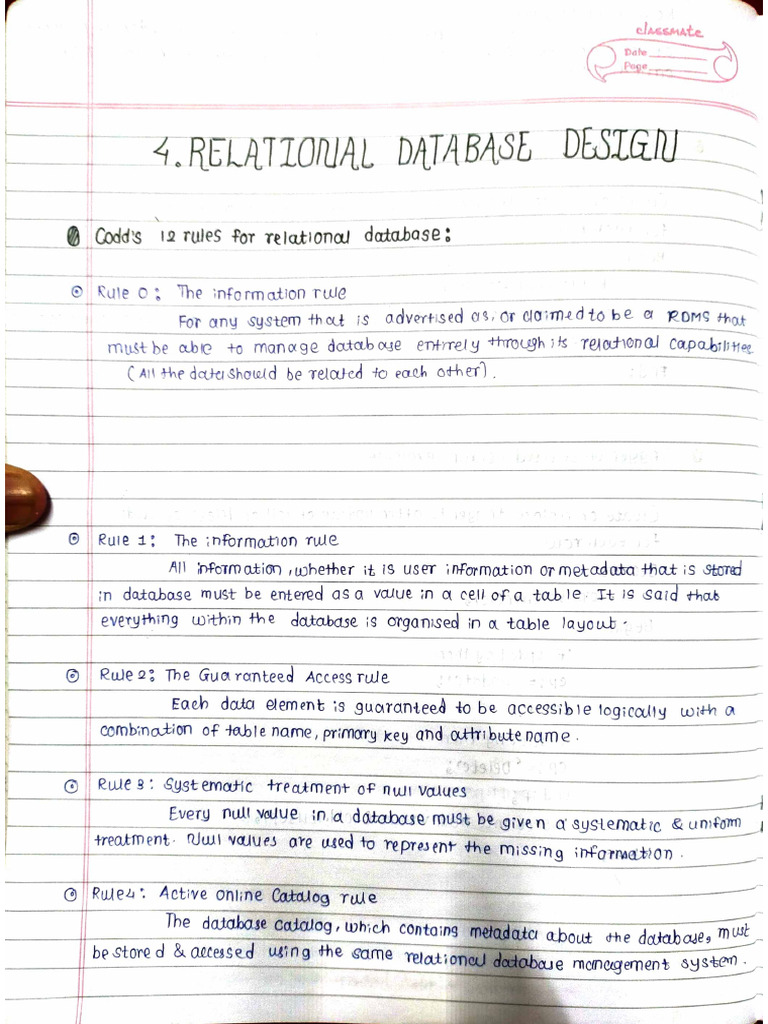 classmate
Date
Page
4. RELATIONAL DATABASE DESIGN
Codd's 12 rules for relational database:
Rule 0: The information rule
For any system that is advertised as, or claimed to be a RDMS that
must be able to manage database entirely through its relational capabilities
(All the data should be related to each other).
Rule 1: The information rule
All information, whether it is user information or metadata that is stored
in database must be entered as a value in a cell of a table. It is said that
everything within the database is organised in a table layout.
Rule 2: The Guaranteed Access rule
Each data element is guaranteed to be accessible logically with a
combination of table name, primary key and attribute name.
Rule 3: Systematic treatment of null values
Every null value in a database must be given a systematic & uniform
treatment. Null values are used to represent the missing information.
Rule 4: Active online Catalog rule
The database catalog, which contains metadata about the database, must
be stored & accessed using the same relational database management system.